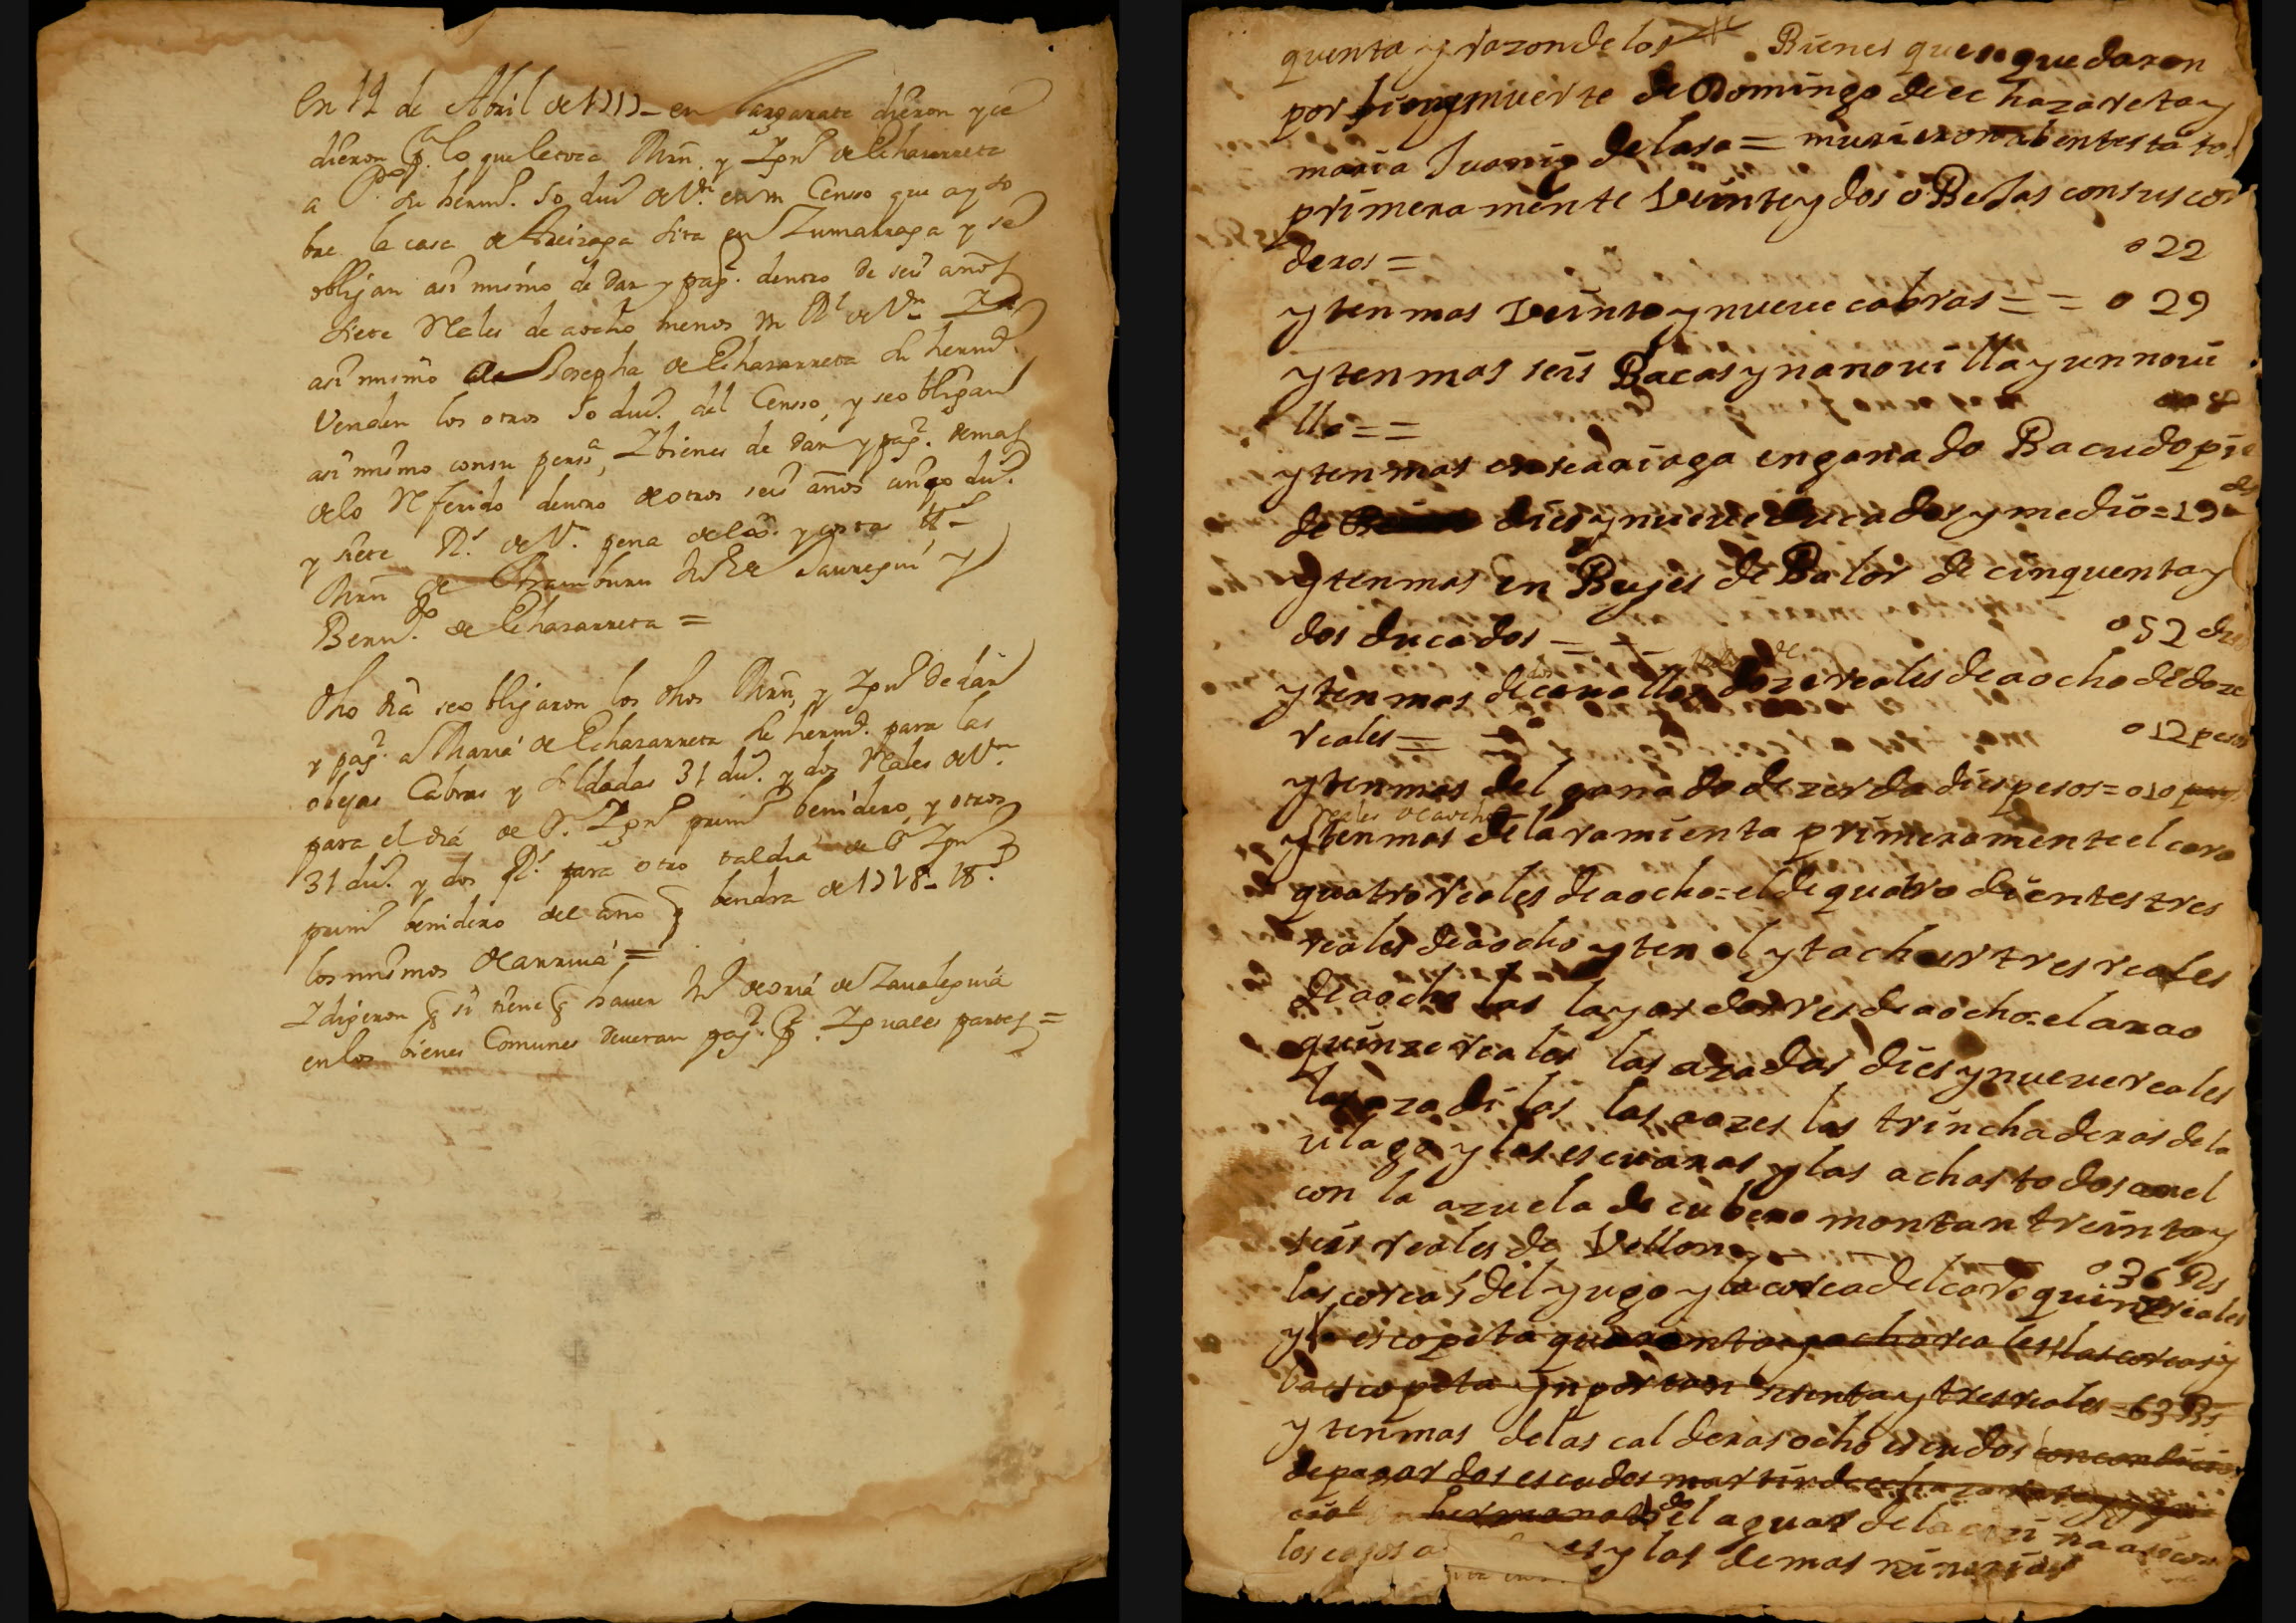 En 12 de Abril de 1717 - en dieron y ce
dieron lo que le toca Mrn. y Ygnº de Echazarreta
a su hermº. 50 duº de Vn. en un Censo que ay so
bre la casa de sita en Zumarraga y se
obligan asi mismo de dar y pagr. dentro de seis años
siete Reales de aocho menos un Rl de Vn
asi mismo a Josepha de Echazarreta su hermª.
Venden los otros 50 duº. del Censso, y se obligan
asi mismo con su persª, Y bienes de dar y pagr. demas
de lo Referido dentro de otros seis años duº.
y siete Rs. de Vn. pena de y costa
Mrn de Aramburu de Jauregui y
Berndº. de Echazarreta =
Dho dia se obligaron los dhos Mrn, y Ygnº de dar
y pagr. a Maria de Echazarreta su hermª. para las
obejas Cabras y Soldadas 31 duº. y dos Reales de Vn.
para el dia de Sn. Ygnº primº benidero, y otros
31 duº. y dos Rs. para otro tal dia de Sn Ygnº
primº benidero del año q bendra de 1718 - 18.
los mismos de arriva =
Y digeron q si tiene q haver de Zavaleguia
en los bienes Comunes deveran pagr. Yguales partes =
quenta y razon de los Bienes que quedaron
por muerte de Domingo de echazarreta y
maria Juaniz de lasa = murieron abentestato
primeramente Veinte y dos oBejas con sus cor
deros = 022
yten mas Veinte y nueve cabras = = 029
yten mas seis Bacas y na novilla y un novi
llo = = 8
yten mas en ganado Bacudo pie
de dies y nueve ducados y medio = 19
yten mas en Buyes de Balor de cinquenta y
dos ducados = 052 du
yten mas de doze reales de aocho de doze
reales = 012 pesos
yten mas del ganado de zerda dies pesos = 010
reales de aocho
yten mas de la ramienta primeramente el caro
quatro reales de aocho = el de quatro dientes tres
reales de aocho yten el ytacheur tres reales
de aocho las layas dos rs de aocho = el arao
quinze reales las azadas dies y nueve reales
las azadillas las aozes las trinchaderas de la
ulaga y las escuaras y las achas todos
con la azuela de cubero montan treinta y
seis reales de Vellon 036 Rs
las coreas del yugo y la corea del caro quinze reales
y la escopeta quarenta y ocho reales las coreas y
la escopeta ynportan sesenta y tres reales = 63 Rs
yten mas de las calderas ocho escudos con condicion
de pagar dos escudos martin de echazarreta y
hermanos del aguar de la cozina
los casos a es y las demas